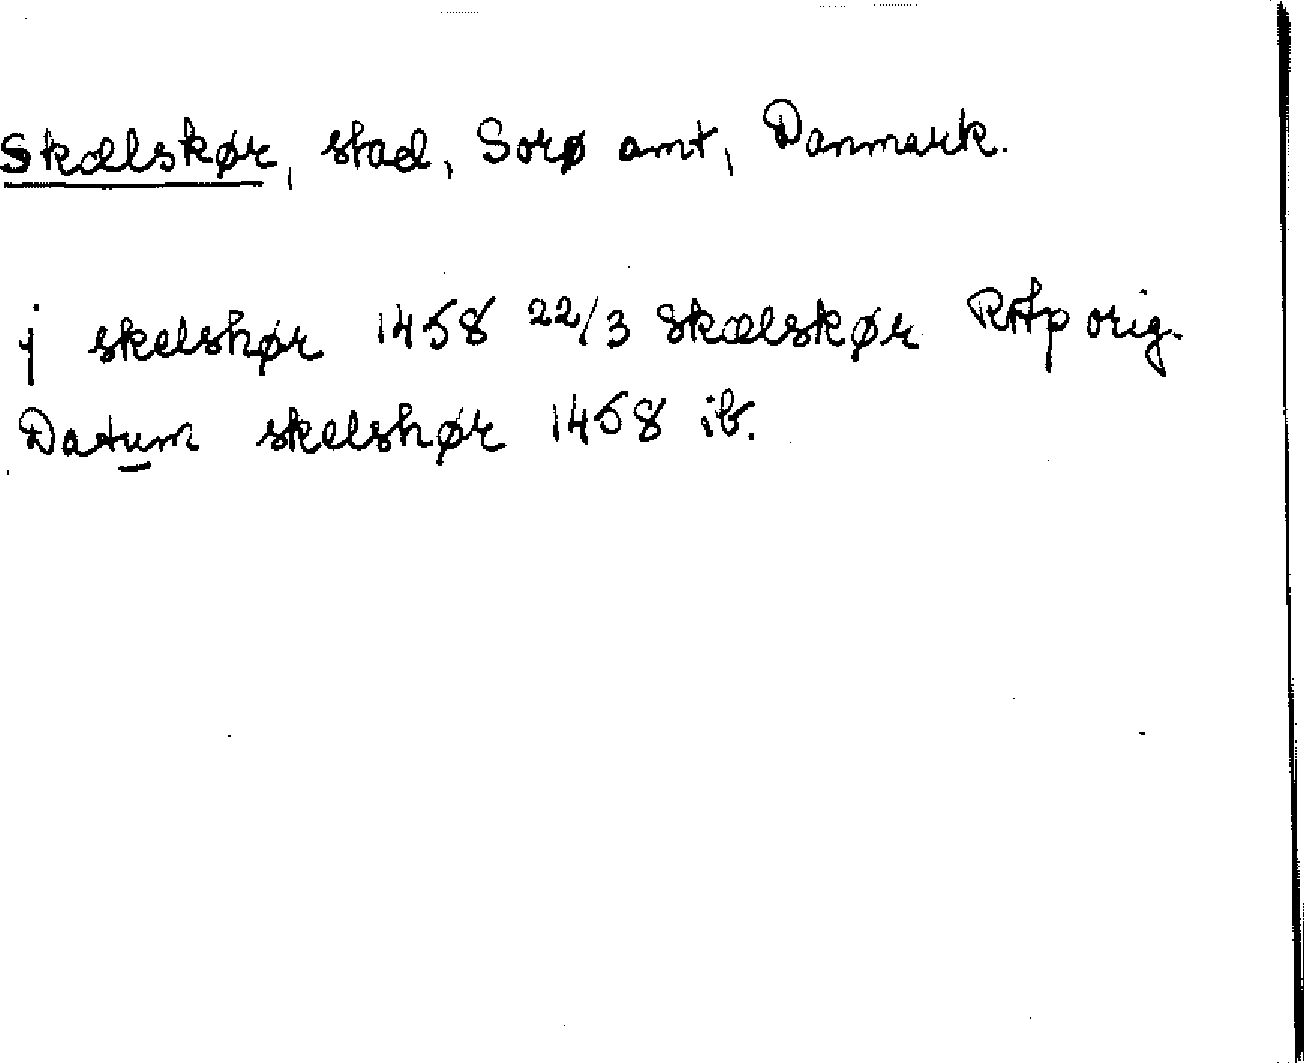 Skælskør, stad, Sorø amt, Danmark.
j skelshør 1458 22/3 Skælskør RAp orig.
Datum skelshør 1458 ib.